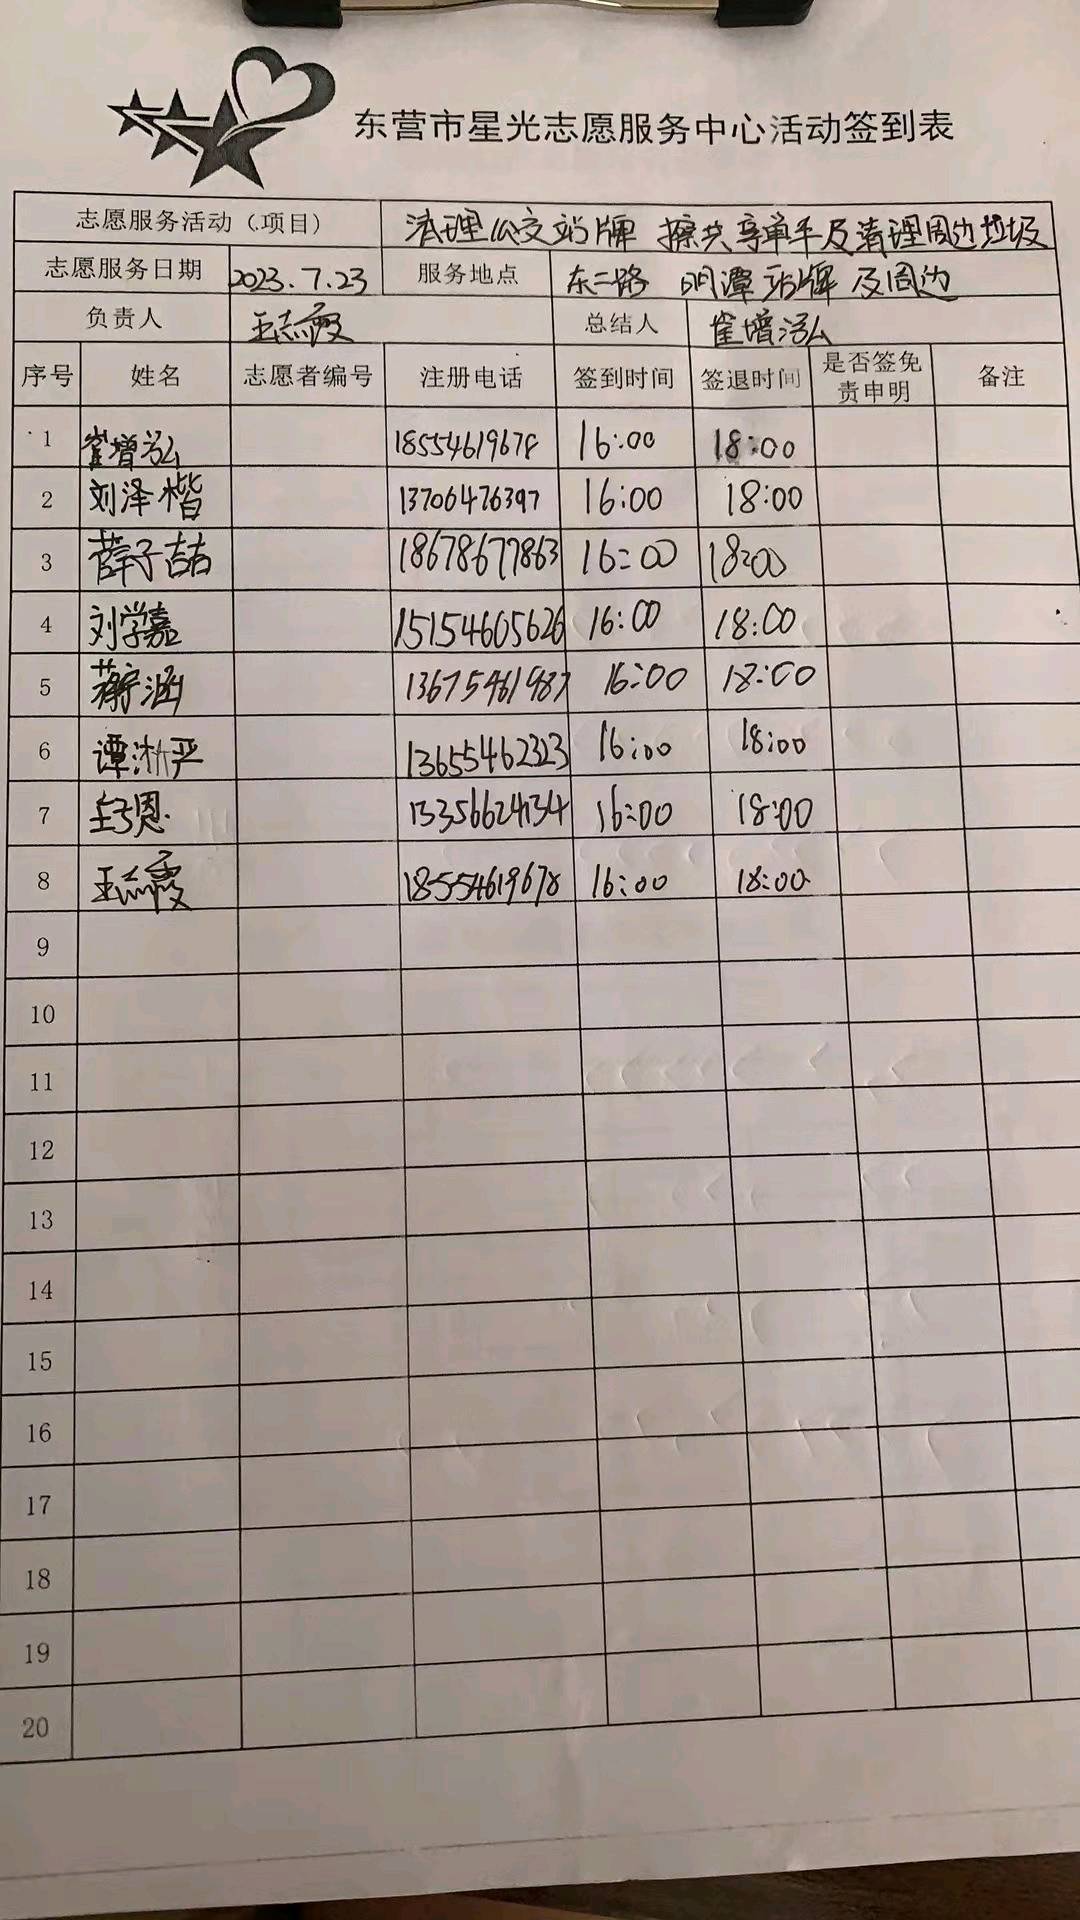 东营市星光志愿服务中心活动签到表
志愿服务活动（项目） 清理公交站牌 擦共享单车及清理周边垃圾
志愿服务日期 2023.7.23 服务地点 东二路 明潭站牌及周边
负责人 王志霞 总结人 崔增泓
序号 姓名 志愿者编号 注册电话 签到时间 签退时间 是否签免责申明 备注
1 崔增泓 18554619678 16:00 18:00
2 刘泽楷 13706476397 16:00 18:00
3 薛子喆 18678677863 16:00 18:00
4 刘学嘉 15154605626 16:00 18:00
5 涵 13675461987 16:00 18:00
6 谭淅严 13655462323 16:00 18:00
7 恩 13356624134 16:00 18:00
8 王志霞 18554619678 16:00 18:00
9
10
11
12
13
14
15
16
17
18
19
20